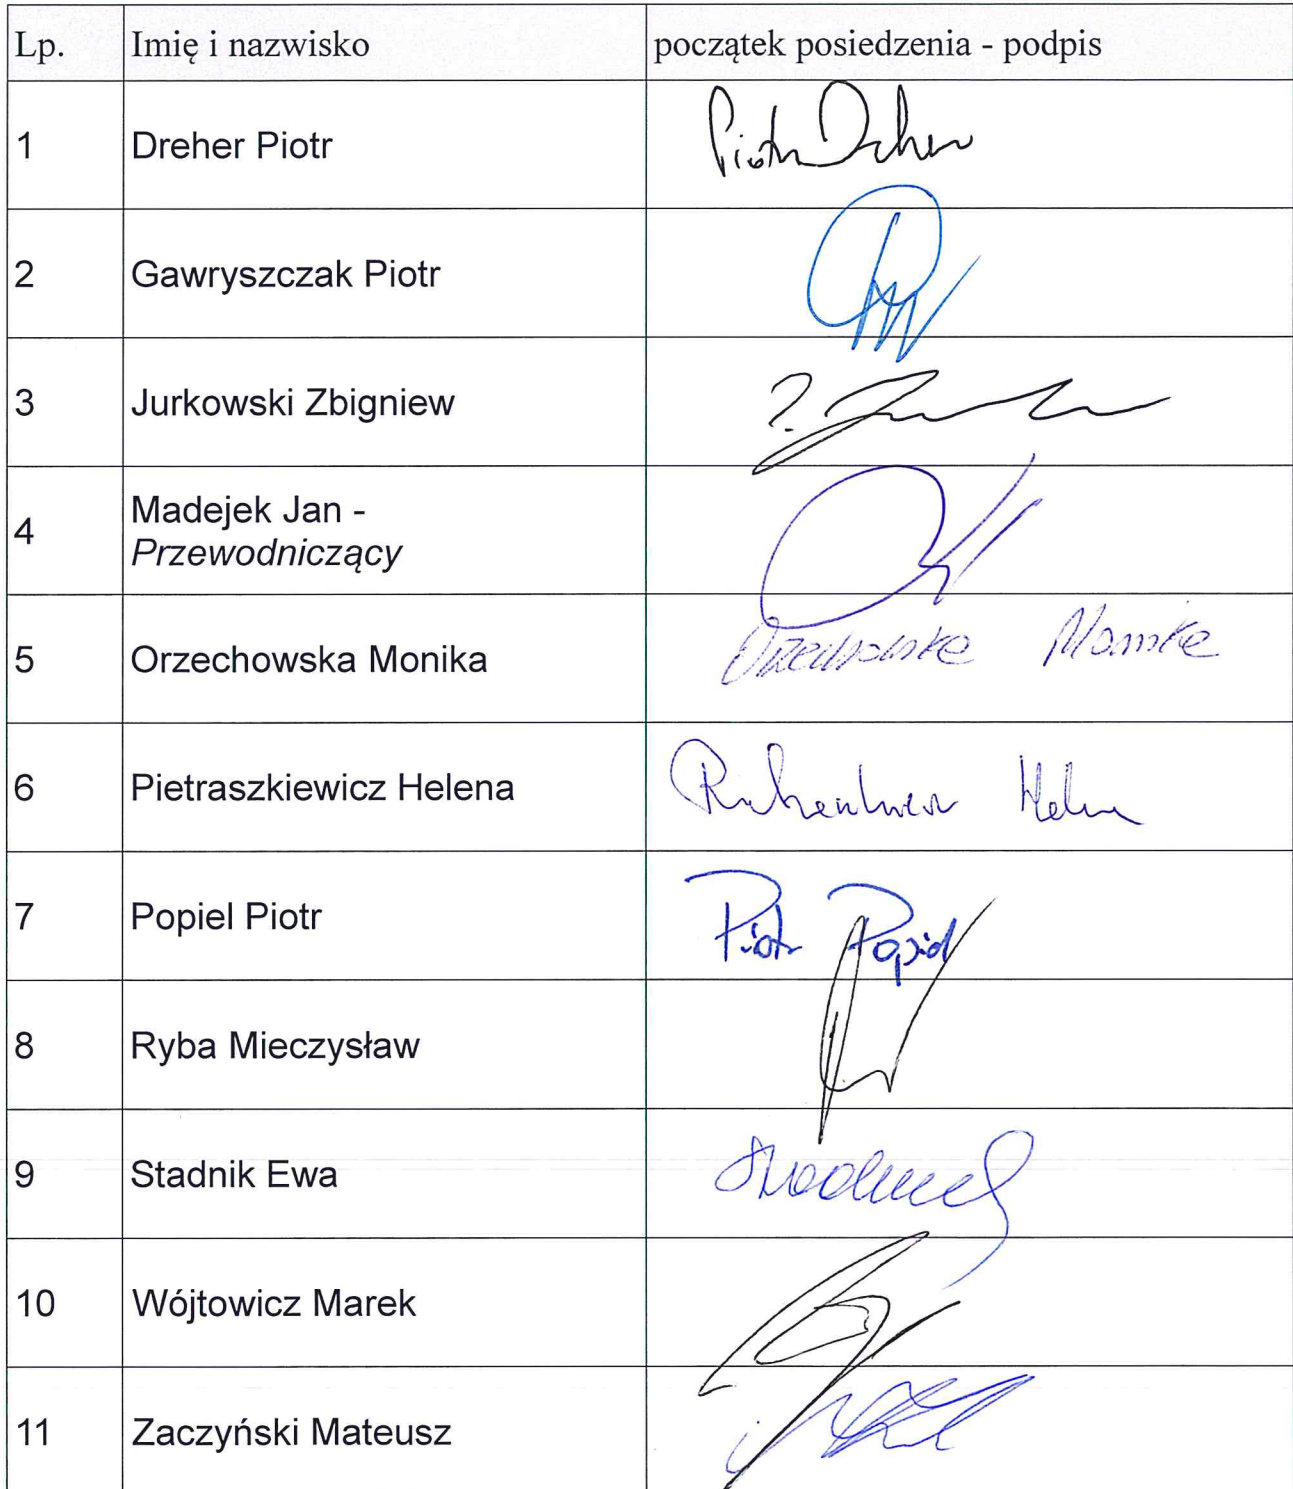 Lp. Imię i nazwisko początek posiedzenia - podpis
1 Dreher Piotr Piotr Dreher
2 Gawryszczak Piotr
3 Jurkowski Zbigniew
4 Madejek Jan -
Przewodniczący
5 Orzechowska Monika Orzechowska Monika
6 Pietraszkiewicz Helena Helena
7 Popiel Piotr Piotr Popiel
8 Ryba Mieczysław
9 Stadnik Ewa
10 Wójtowicz Marek
11 Zaczyński Mateusz